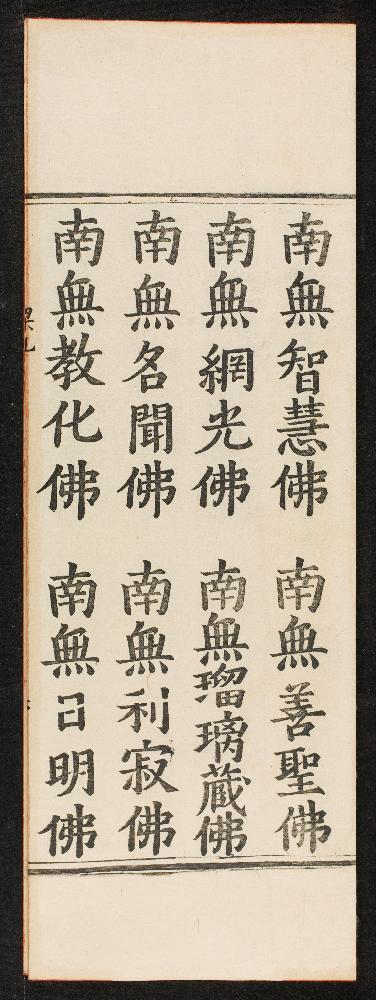 南無智慧佛 南無善聖佛
南無網光佛 南無瑠璃藏佛
南無名聞佛 南無利寂佛
南無教化佛 南無日明佛